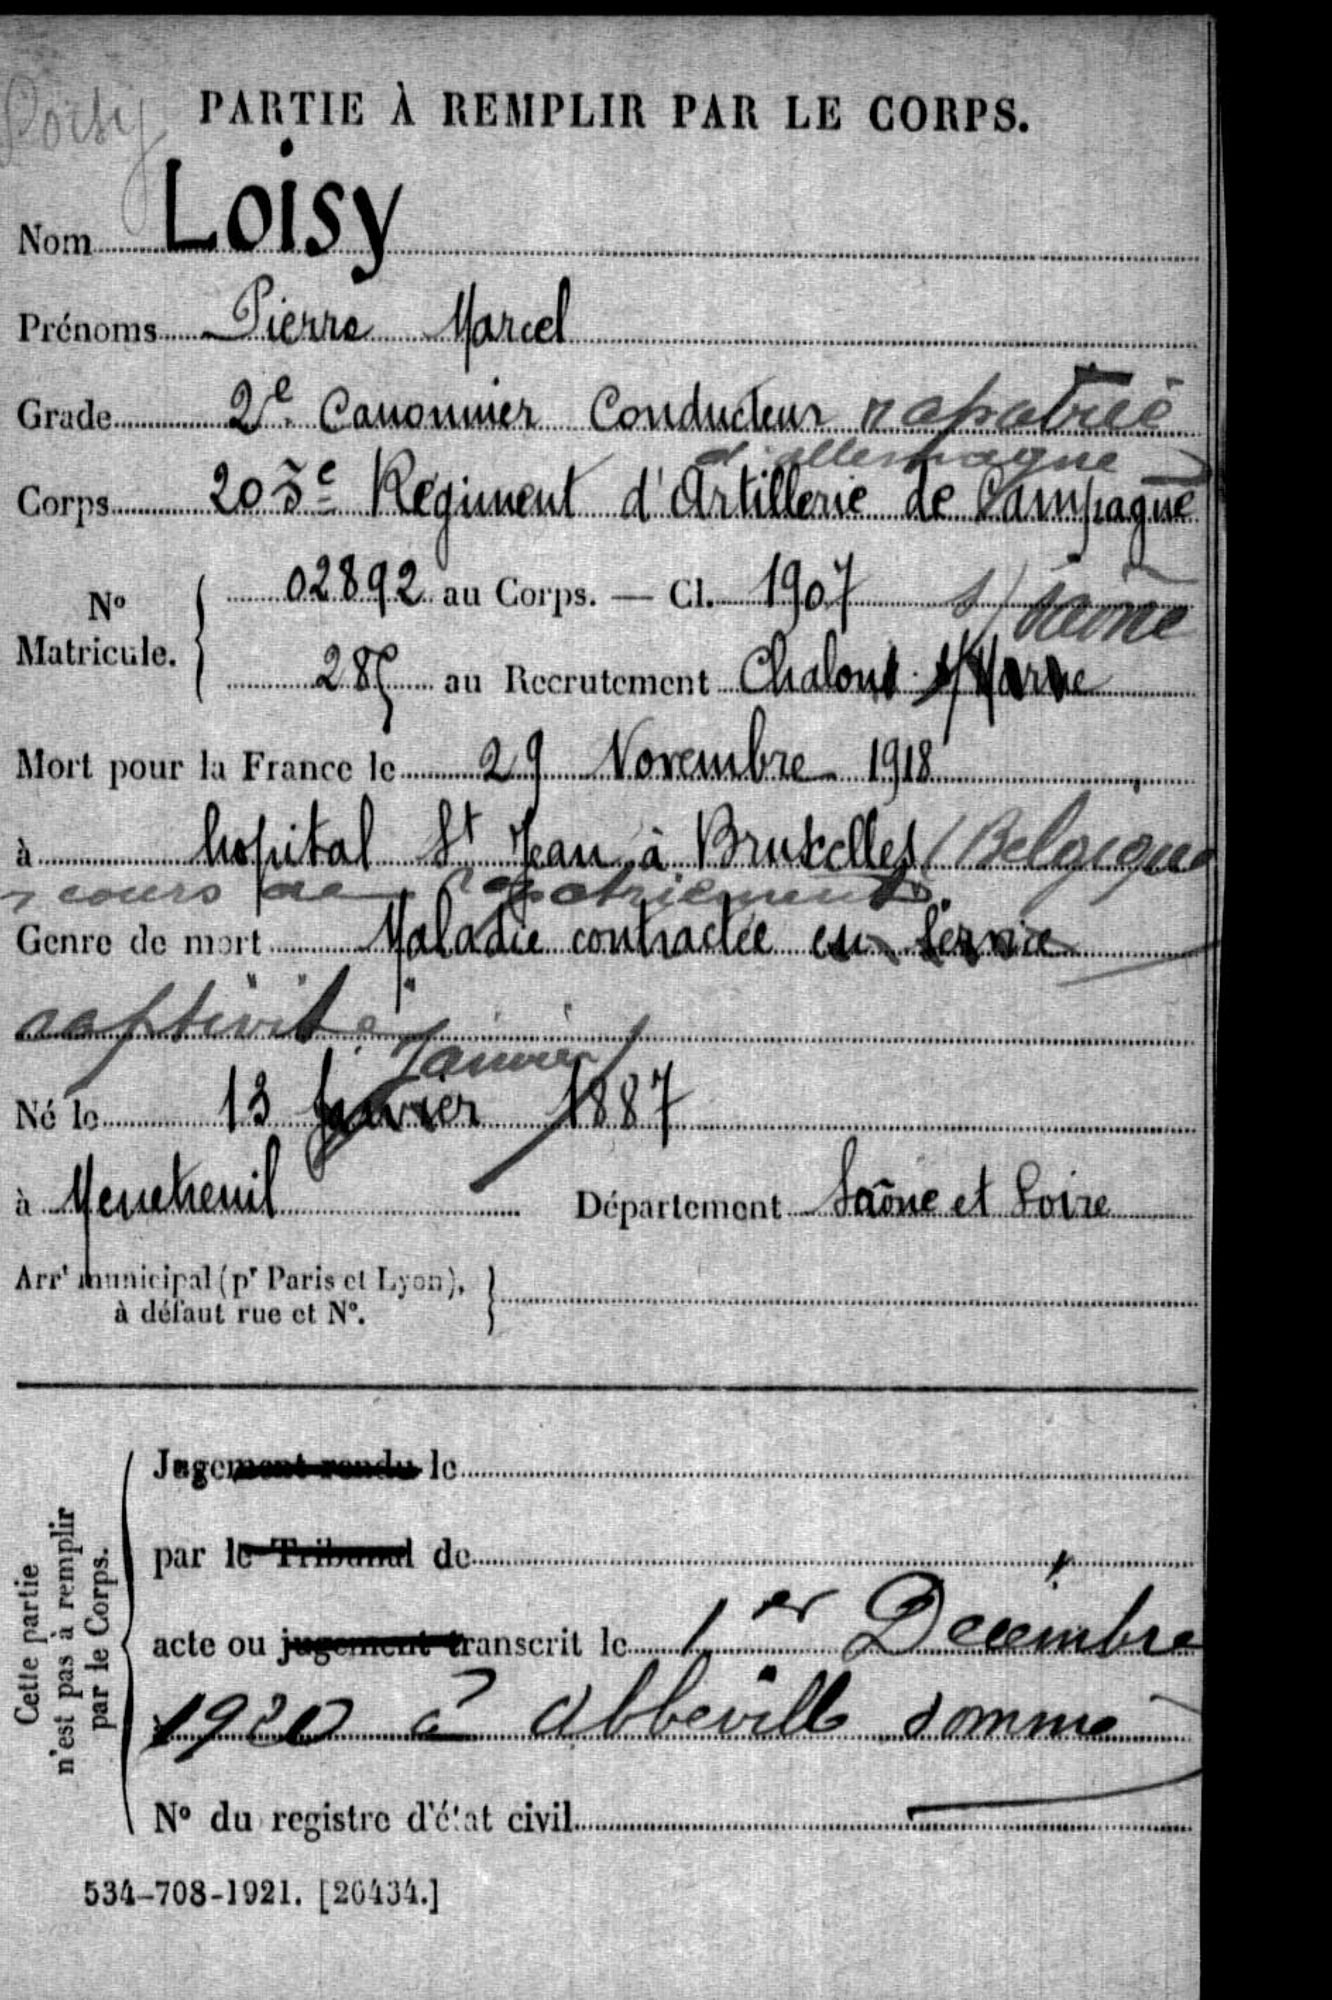 PARTIE À REMPLIR PAR LE CORPS.
Loisy
Nom Loisy
Prénoms Pierre Marcel
Grade 2e Canonnier Conducteur rapatrié
d'allemagne
Corps 203e Régiment d'Artillerie de Campagne
No Matricule. 02892 au Corps. — Cl. 1907 s/ Saône
285 au Recrutement Chalons s/Marne
Mort pour la France le 29 Novembre 1918
à hopital St Jean à Bruxelles (Belgique
cours de rapatriement
Genre de mort Maladie contractée en Service
captivité
Janvier
Né le 13 1887
à Menetreuil Département Saône et Loire
Arrt municipal (pr Paris et Lyon),
à défaut rue et No.
Cette partie
n'est pas à remplir
par le Corps.
Jugement rendu le
par le Tribunal de
acte ou jugement transcrit le 1er Décembre
1920 à Abbeville Somme
No du registre d'état civil
534-708-1921. [26434.]